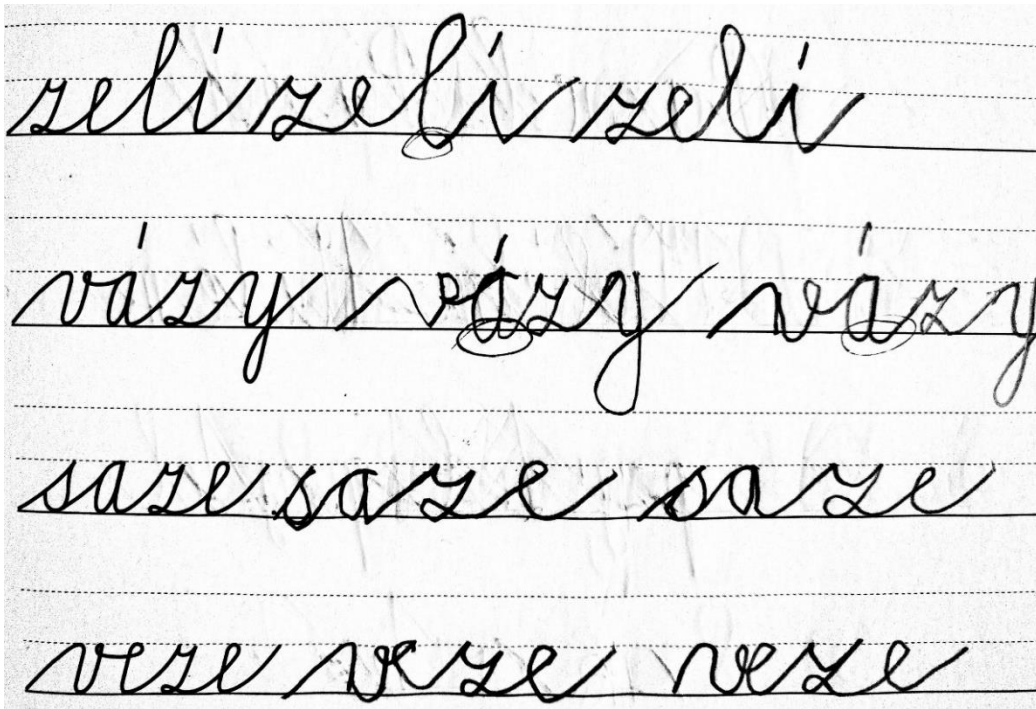 zelí zelí zelí
vázy vázy vázy
saze saze saze
veze veze veze